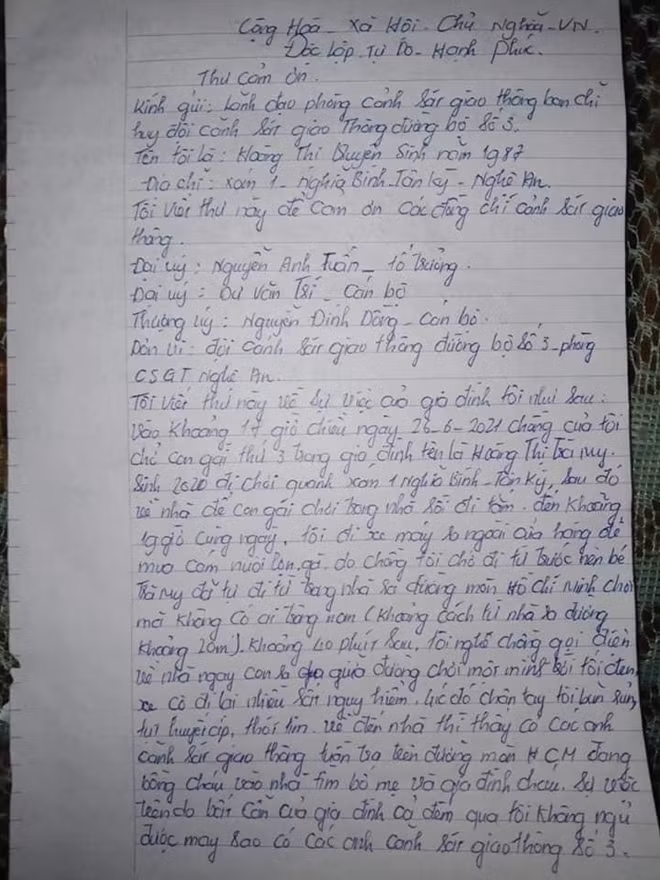 Cộng Hoà - Xã Hội - Chủ Nghĩa - VN.
Độc Lập - Tự Do - Hạnh Phúc.
Thư cảm ơn.
Kính gửi: Lãnh đạo phòng cảnh sát giao thông ban chỉ
huy đội cảnh sát giao Thông đường bộ số 3.
Tên tôi là: Hoàng Thị Quyên Sinh năm 1987
Địa chỉ: xóm 1 - Nghĩa Bình - Tân kỳ - Nghệ An.
Tôi viết thư này để cảm ơn các đồng chí cảnh sát giao
thông.
Đại uý: Nguyễn Anh Tuấn - tổ trưởng.
Đại uý: Dư Văn Trí - Cán bộ
Thượng uý: Nguyễn Đình Dũng - Cán bộ.
Đơn vị: đội cảnh sát giao thông đường bộ số 3 - phòng
CSGT Nghệ An.
Tôi viết thư này về sự việc của gia đình tôi như sau:
Vào khoảng 17 giờ chiều ngày 26-6-2021 chồng của tôi
chở con gái thứ 3 trong gia đình tên là Hoàng Thị Trà My.
Sinh 2020 đi chơi quanh xóm 1 Nghĩa Bình - Tân Kỳ, sau đó
về nhà để con gái chơi trong nhà rồi đi tắm. đến khoảng
19 giờ cùng ngày, tôi đi xe máy ra ngoài cửa hàng để
mua cám nuôi lợn, gà. do chồng tôi chở đi từ trước nên bé
Trà My đã tự đi từ trong nhà ra đường mòn Hồ Chí Minh chơi
mà không có ai trông nom (khoảng cách từ nhà ra đường
khoảng 20m). Khoảng 40 phút sau, tôi nghe chồng gọi điện
về nhà ngay con ra giữa đường chơi một mình trời tối đen,
xe cộ đi lại nhiều rất nguy hiểm. lúc đó chân tay tôi bủn rủn,
tụt huyết áp, thót tim. về đến nhà thì thấy có các anh
cảnh sát giao thông tuần tra trên đường mòn HCM đang
bồng cháu vào nhà tìm bố mẹ và gia đình cháu. Sự việc
trên do bất cẩn của gia đình cả đêm qua tôi không ngủ
được may sao có các anh cảnh sát giao thông số 3.